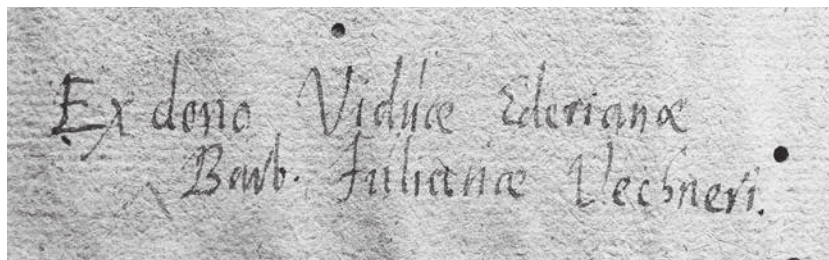 Ex dono Viduæ Ederianæ
Barb. Julianæ Vechneri.